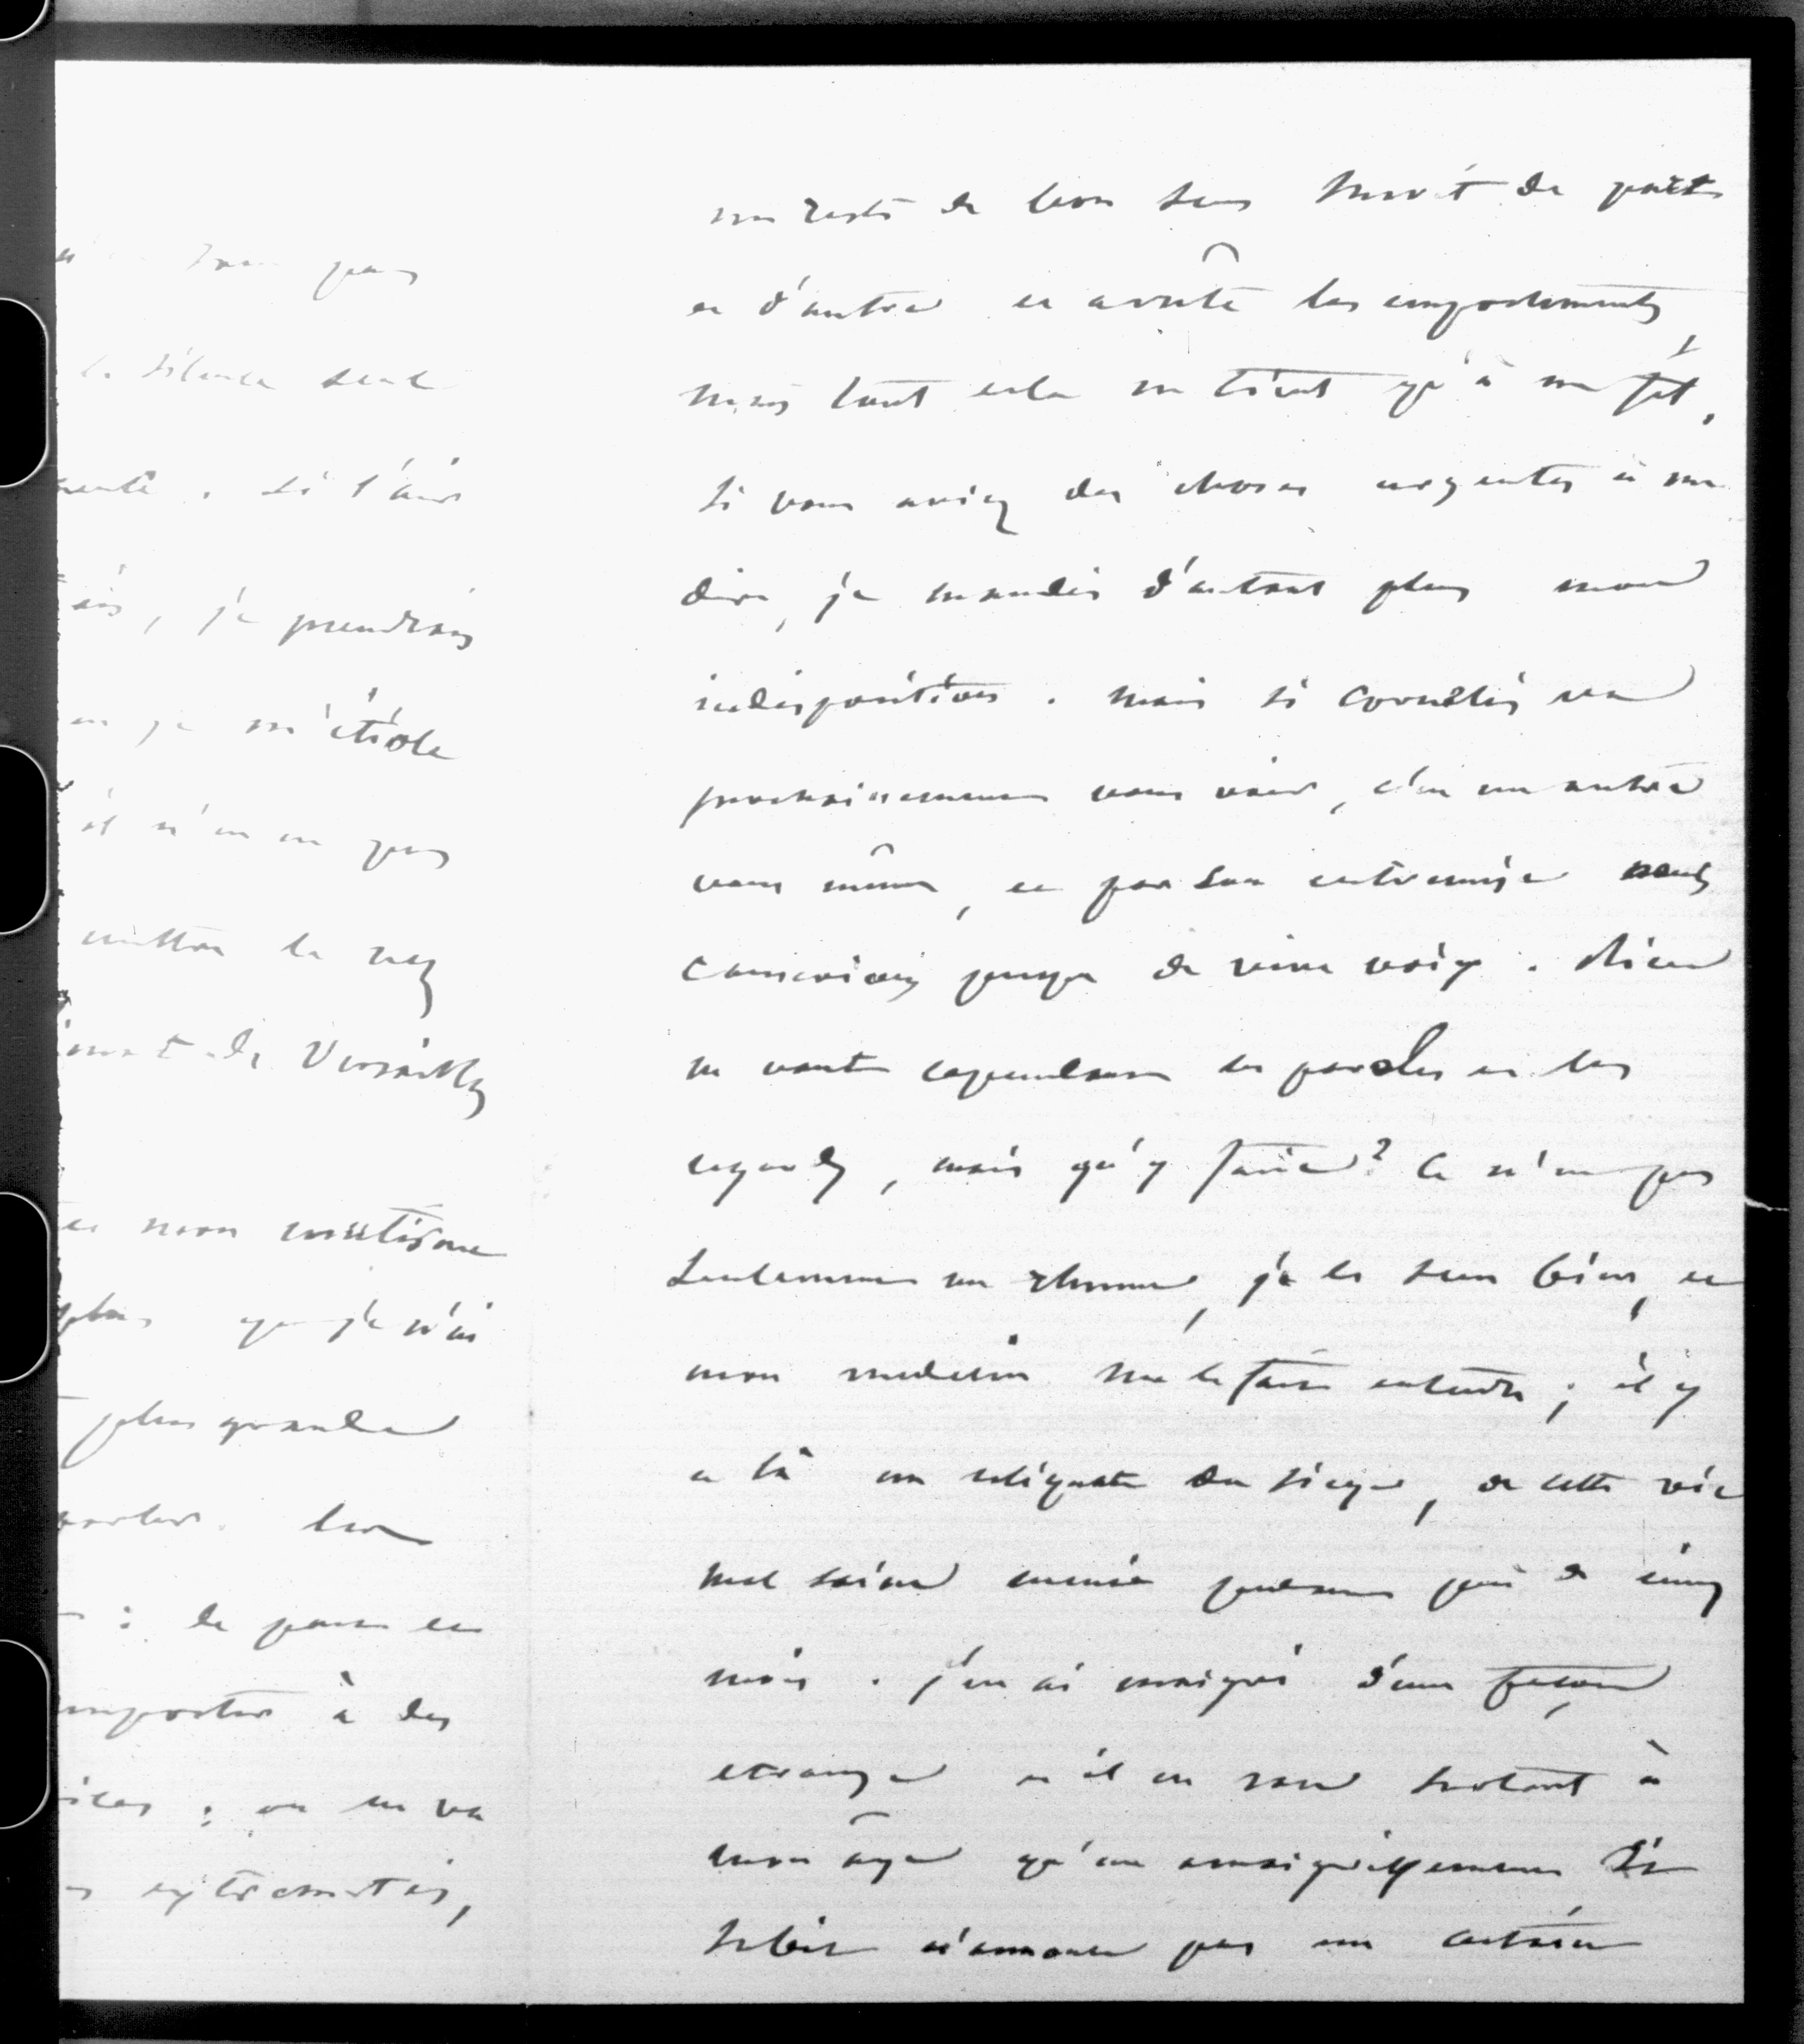 pas
le silence seul
santé. Si l'air
je prendrais
je m'étiole
il n'en est pas
mettre le nez
de Versailles
et mon mutisme
plus que je n'ai
plus grande
parler. Les
: de part et
emporter à des
; on en va
extrémités,
un reste de bon sens survit de part
et d'autre et arrête les emportements,
mais tout cela ne tient qu'à un fil.
Si vous aviez des choses urgentes à me
dire, je maudis d'autant plus mon
indisposition. Mais si Cornélis va
prochainement vous voir, c'est un autre
vous même, et par son entremise nous
causerions presque de vive voix. Rien
ne vaut cependant les paroles et les
regards, mais qu'y faire? Ce n'est pas
seulement un rhume, je le sens bien, et
mon medecin me le fait entendre; il y
a là un reliquat du siege, de cette vie
mal saine menée pendant près de cinq
mois. J'en ai maigri d'une façon
etrange et il est rare surtout à
mon âge qu'un amaigrissement si
subit n'annonce pas un certain